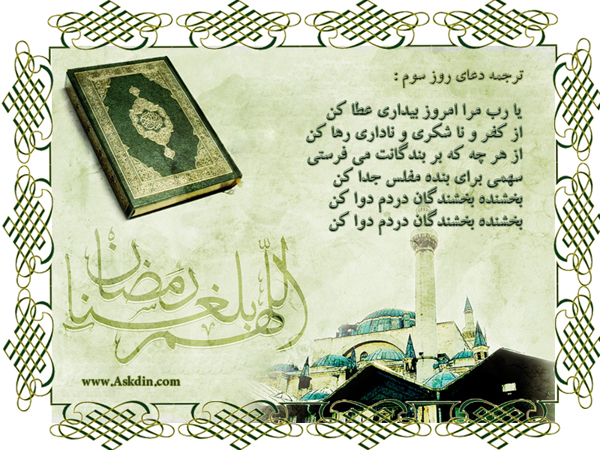 ترجمه دعای روز سوم :
یا رب مرا امروز بیداری عطا کن
از کفر و نا شکری و ناداری رها کن
از هر چه که بر بندگانت می فرستی
سهمی برای بنده مفلس جدا کن
بخشنده بخشندگان دردم دوا کن
بخشنده بخشندگان دردم دوا کن
اللهم بلغنا رمضان
www.Askdin.com